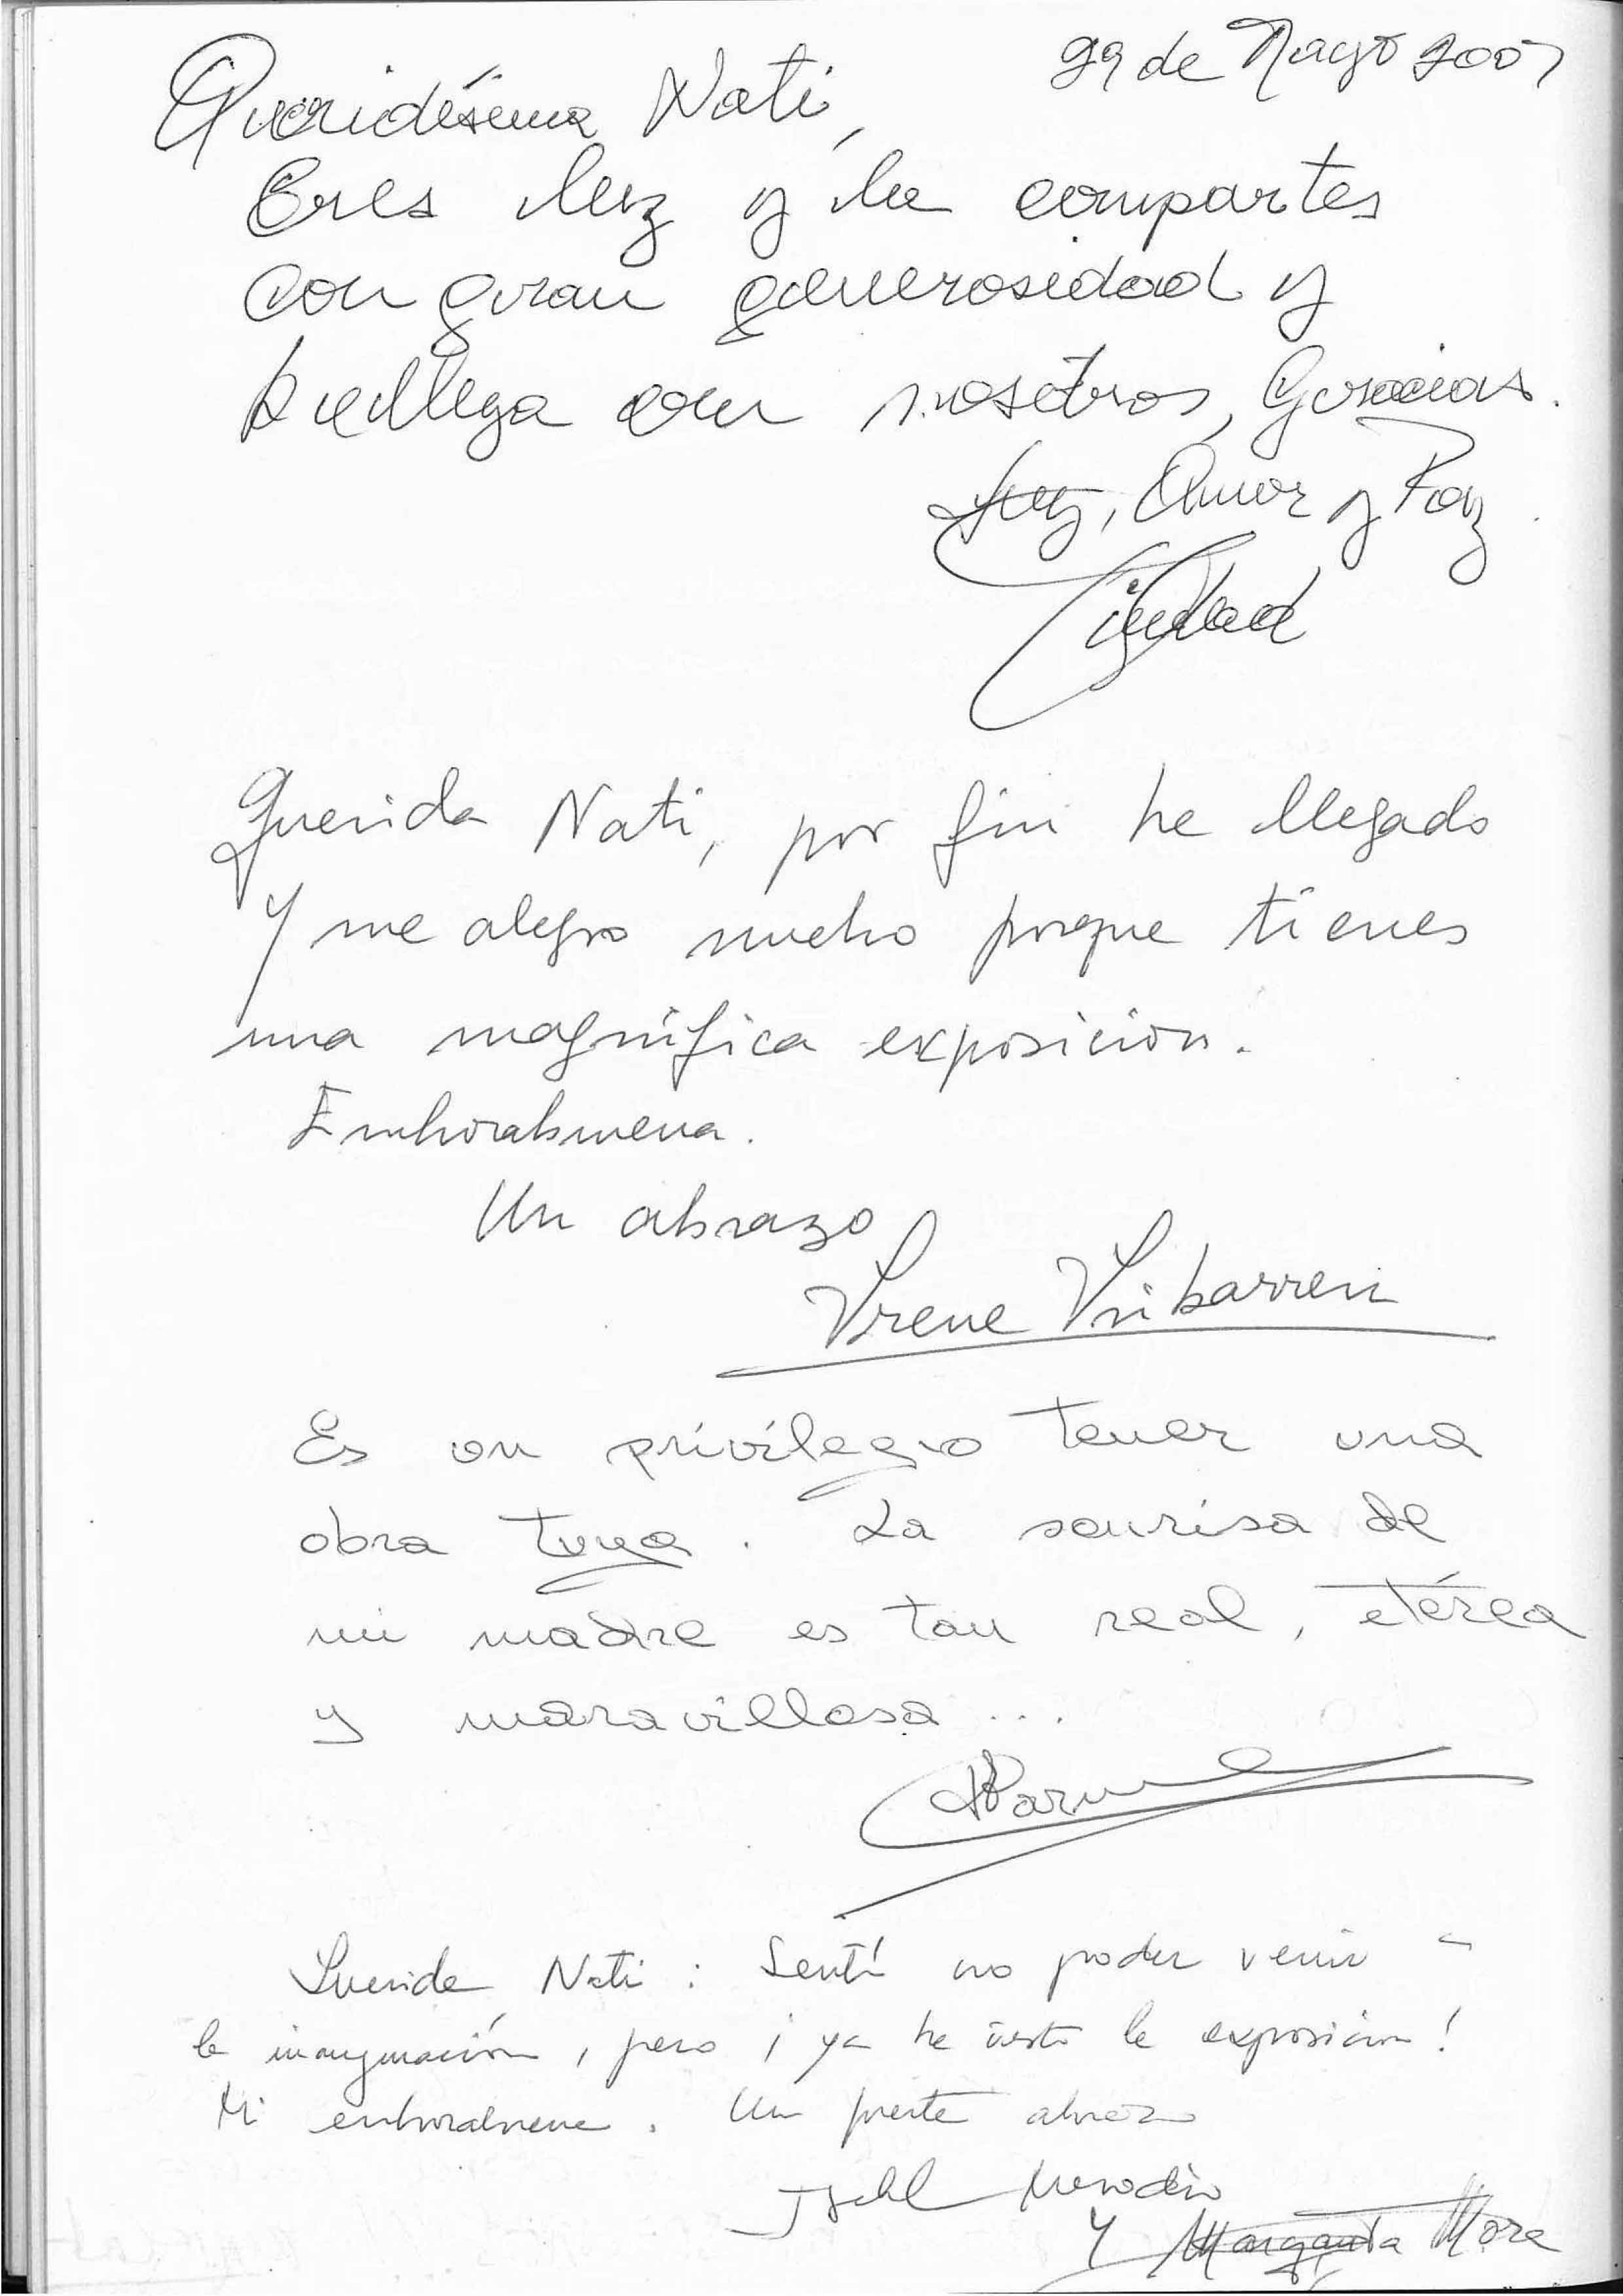 29 de Mayo 2007
Queridísima Nati,
Eres luz y la compartes
con gran generosidad y
b llega con nosotros, Gracias.
Luz, Amor y Paz
Querida Nati, por fin he llegado
Y me alegro mucho porque tienes
una magnífica exposición.
Enhorabuena.
Un abrazo
Irene Iribarren
Es un privilegio tener una
obra tuya. La sonrisa de
mi madre es tan real, etérea
y maravillosa...
Querida Nati: Sentí no poder venir a
la inauguración, pero ¡ya he visto la exposición!
Mi enhorabuena. Un fuerte abrazo
Isabel Merodio
Y Margarita Mora